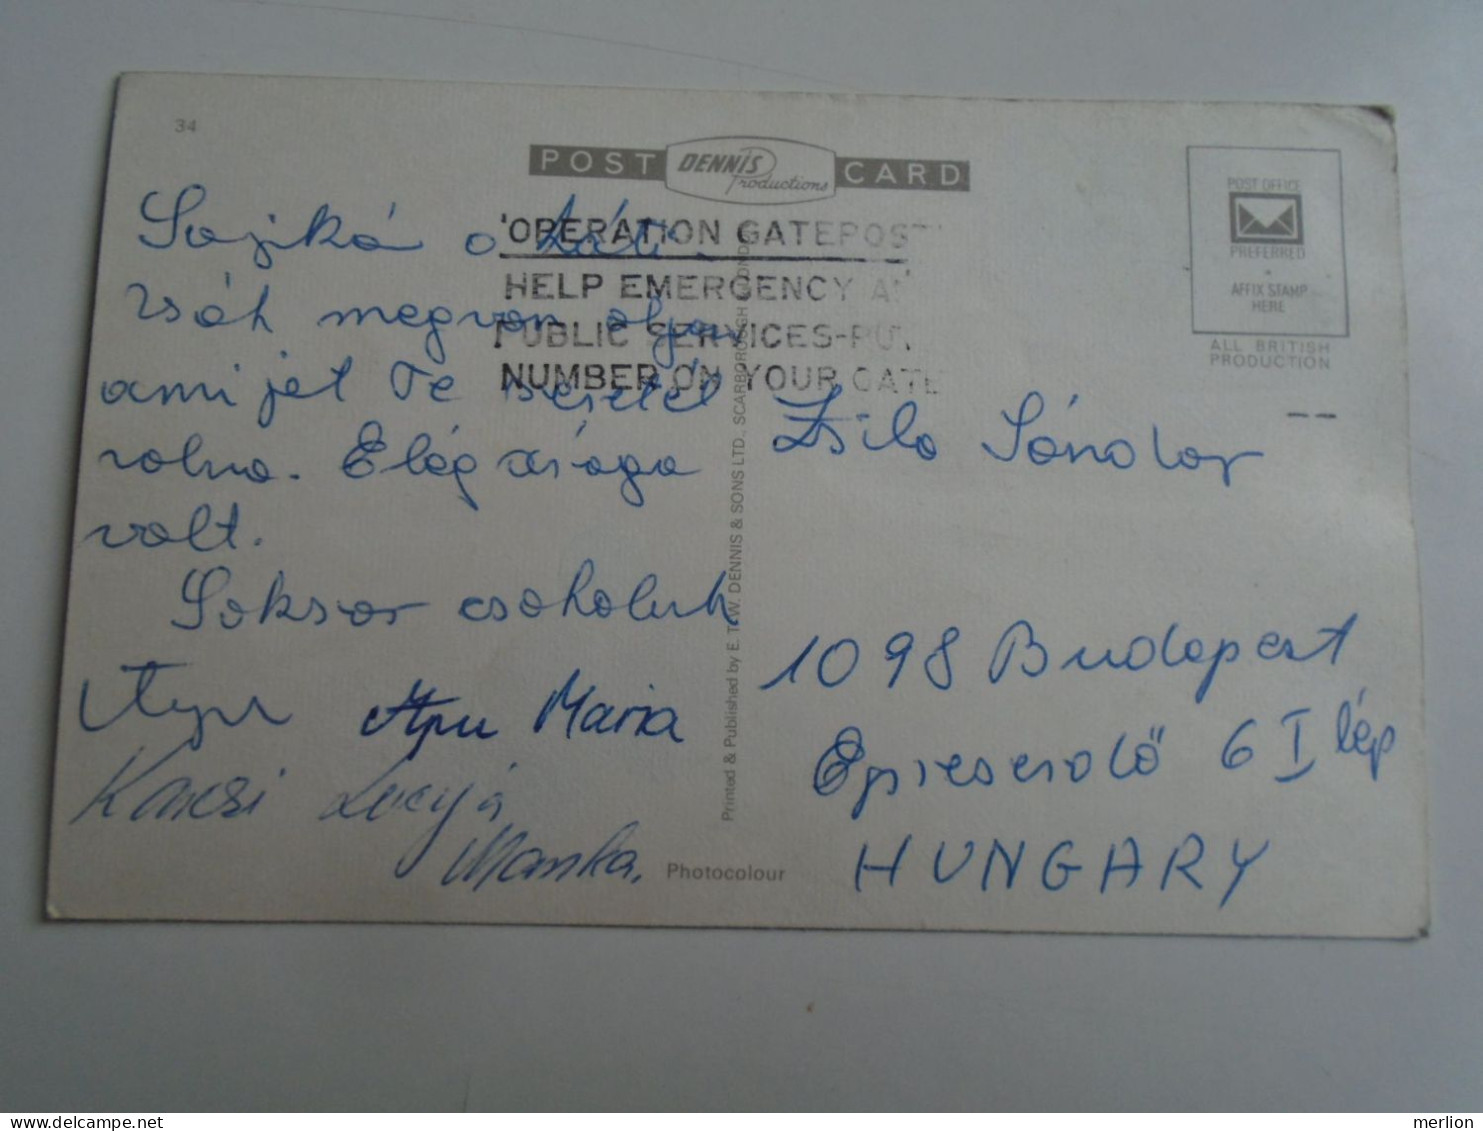 34
POST DENNIS Productions CARD
POST OFFICE
PREFERRED
AFFIX STAMP
HERE
ALL BRITISH
PRODUCTION
'OPERATION GATEPOST'
HELP EMERGENCY
PUBLIC SERVICES-PUT
NUMBER ON YOUR GATE
o háti
zsák megvan olyan
amijet Te szeretél
volna. Elég drága
volt.
Sokszor csokoluk
Anyu Apu Maria
Karcsi Lucyá
Manka.
Printed & Published by E. T. W. DENNIS & SONS LTD., SCARBOROUGH
Photocolour
Zsila Sándor
1098 Budapest
Epreserdő 6 I lép
HUNGARY
merlion
delcampe.net